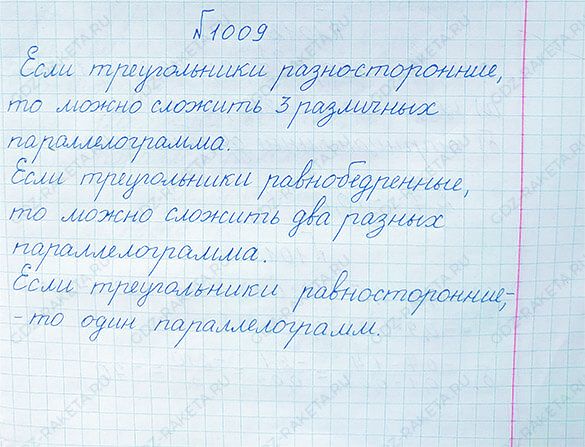 №1009
Если треугольники разносторонние,
то можно сложить 3 различных
параллелограмма.
Если треугольники равнобедренные,
то можно сложить два разных
параллелограмма.
Если треугольники равносторонние,-
- то один параллелограмм.
GDZ-RAKETA.RU